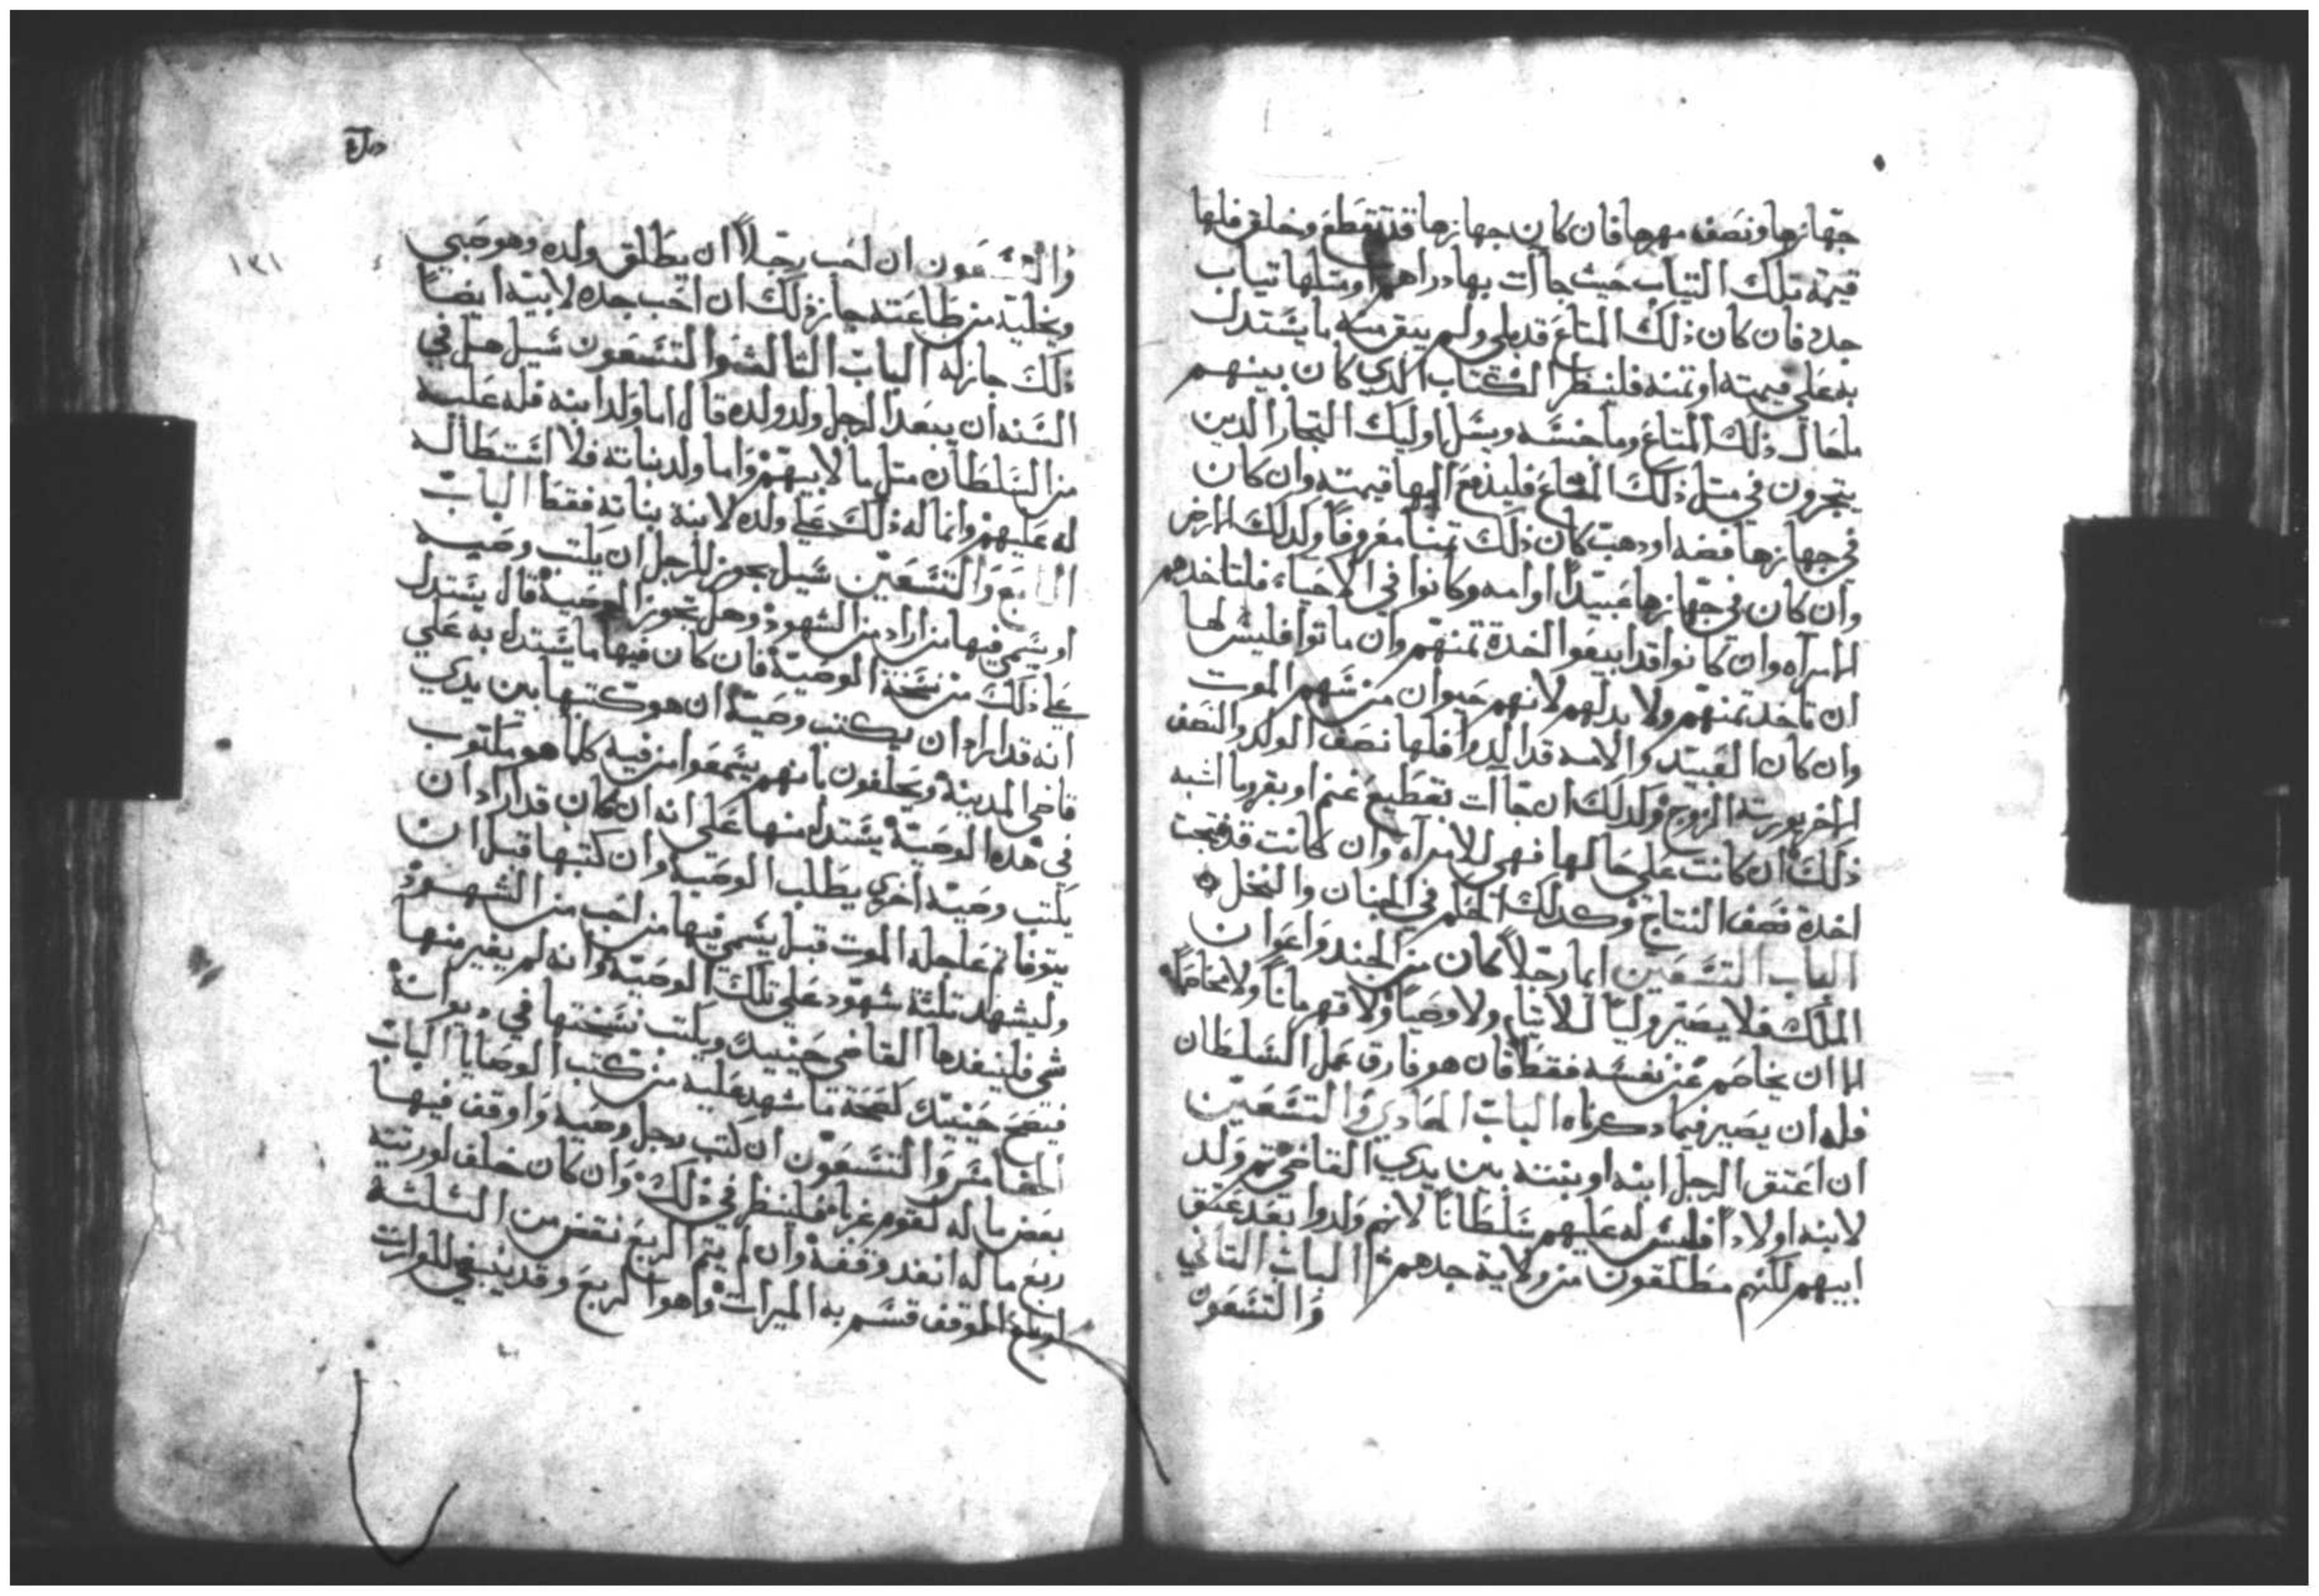 جهازها ونصف مهرها فان كان جهازها قد تقطع وخلق فلها
قيمة تلك التياب حيث جاات بها دراهم او متلها تياب
جدد فان كان ذلك المتاع قد بلي ولم يبق منه ما يستدل
به على قيمته او تمنه فلينظر الكتاب الدي كان بينهم
ما حال ذلك المتاع وما جنسه ويسل اوليك التجار الدين
يتجرون في متل ذلك المتاع فليدفع اليها قيمته وان كان
في جهازها فضه او دهب كان ذلك تمنا معروفا وكدلك الارض
وان كان في جهازها عبيدا او امه وكانوا في الاحياء فلتاخدهم
الامراه وان كانوا قد ابيعوا اخدة تمنهم وان ماتوا فليس لها
ان تاخد تمنهم ولا بدلهم لانهم حيوان منزلتهم الموت
وان كان العبيد والامه قد اولدوا فلها نصف الولد والنصف
الاخر يورته الزوج وكدلك ان جاات بقطيع غنم او بقر وما اشبه
ذلك ان كانت على حالها فهي للامراه وان كانت قد نتجت
اخدة نصف النتاج وكدلك الحكم في الجنان والنخل
الباب التسعين ايما رجلا كان من الجند واعوان
الملك فلا يصير وليا للايتام ولا وصيا ولا قهرمانا ولا مخاصما
الا ان يخاصم عن نفسه فقط فان هو فارق عمل السلطان
فله ان يصير فيما دكرناه الباب الحادي والتسعين
ان اعتق الرجل ابنه او بنته بين يدي القاضي تم ولد
لابنه اولادا فليس له عليهم سلطانا لانهم ولدوا بعد عتق
ابيهم لكنهم مطلقون من ولاية جدهم الباب التاني
والتسعون
١٢١
والتسعون ان احب رجلا ان يطلق ولده وهو صبي
ويخليه من طاعته جاز ذلك ان احب جده لابيه ايضا
ذلك جاز له الباب التالت والتسعون سيل هل في
السنه ان يبعد الرجل ولد ولده قال اما ولد ابنه فله عليه
من السلطان متل ما لابيهم واما ولد بناته فلا استطاله
له عليهم وانما له ذلك على ولده لابنه بناته فقط الباب
الرابع والتسعين سيل يجوز للرجل ان يكتب وصيه
او يسمي فيها من اراد من الشهود وهل تجوز الوصية قال يستدل
على ذلك من نسخة الوصية فان كان فيها ما يستدل به على
انه قد اراد ان يكتب وصية ان هو كتبها بين يدي
قاضي المدينة ويحلفون بانهم يسمعوا من فيه كلما هو مكتوب
في هذه الوصية يستدل منها على انه ان كان قد اراد ان
يكتب وصية اخرى يطلب الوصية وان كتبها قبل ان
يتوفا تم عاجله الموت قبل يسمي فيها من احب من الشهود
وليشهد تلتة شهود على تلك الوصية وانه لم يغير منها
شي فلينفدها القاضي حينيد ويكتب نسختها في ديوانه
فتصح حينيد كصحة ما شهد عليه من كتب الوصايا الباب
الخامس والتسعون ان كتب رجل وصية واوقف فيها
بعض ما له لقوم غرباء فلينظر في ذلك وان كان خلف لورتته
ربع ماله انفد وقفه وان لم يتم الربع نقص من التلتة
ارباع الموقف قسم به الميرات وهو الربع وقد ينبغي للوارت